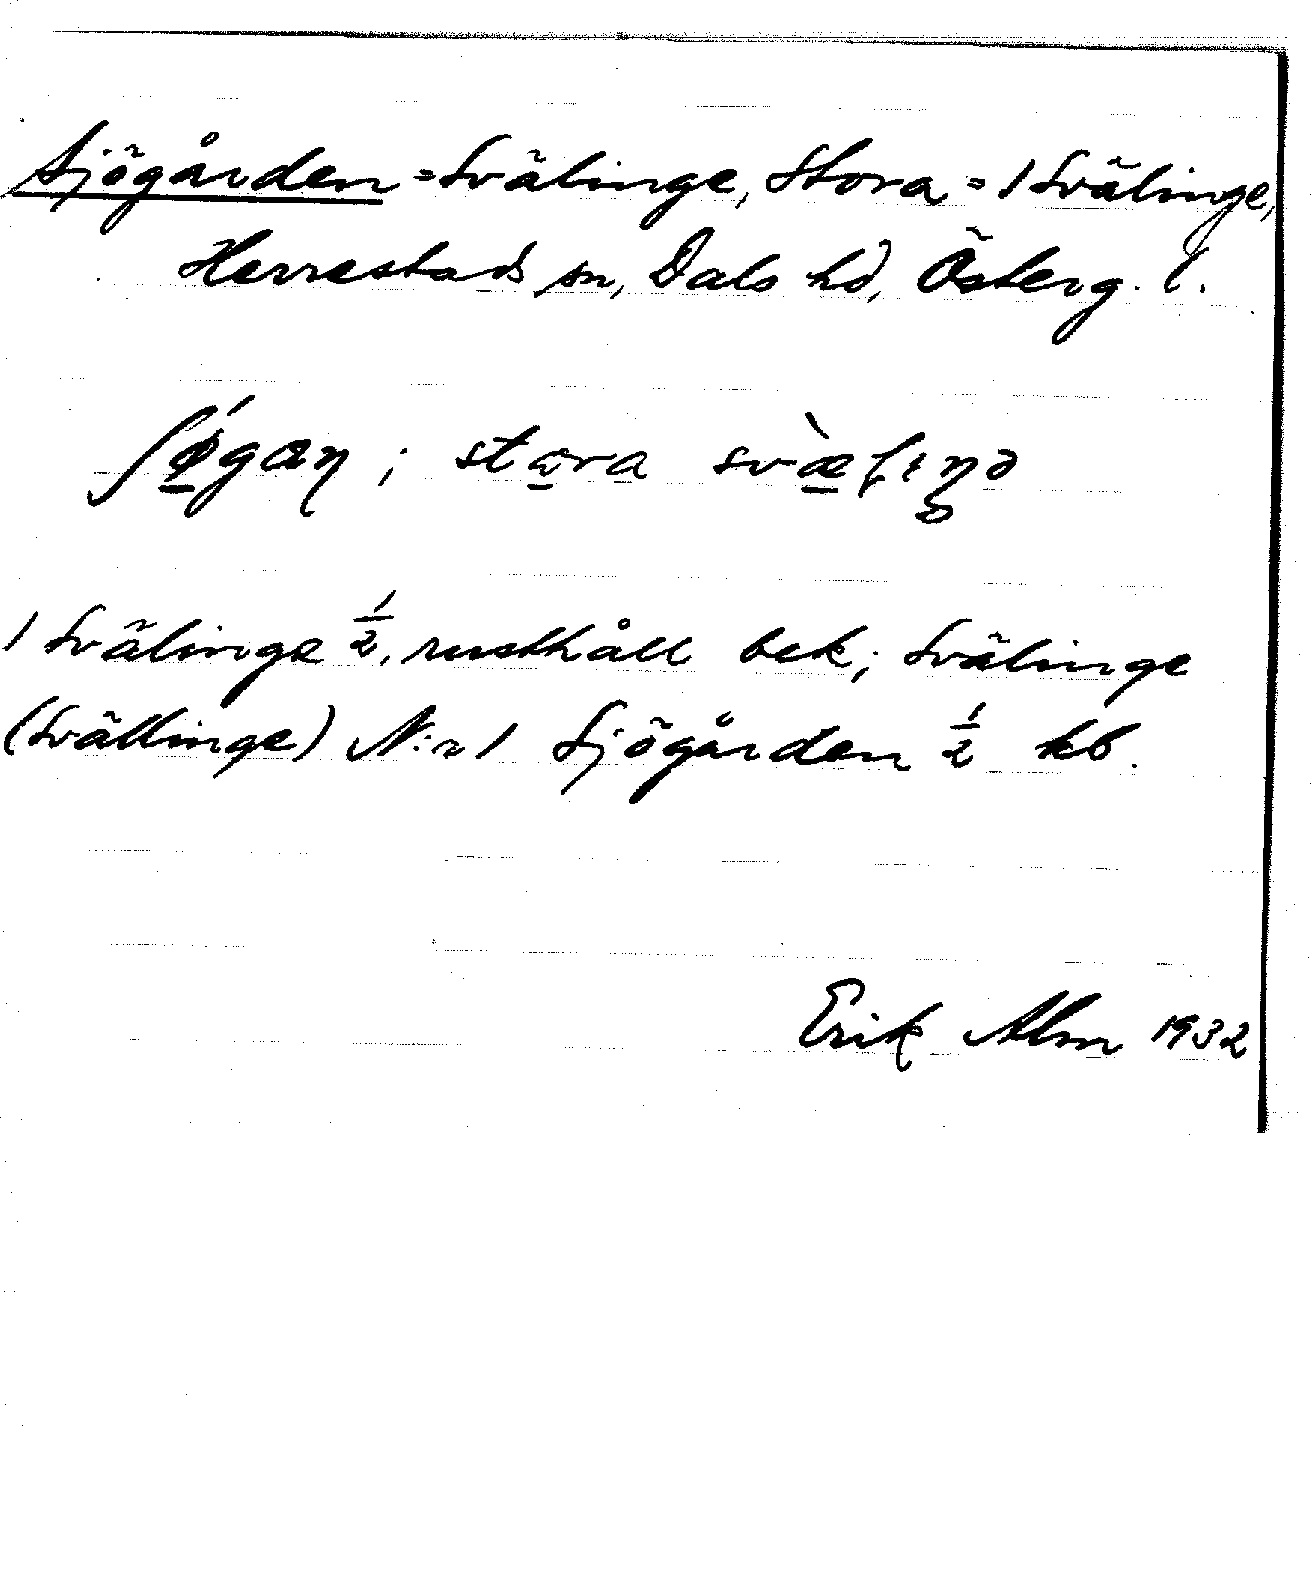 Sjögården = Svälinge, Stora = 1 Svälinge,
Herrestads sn, Dals hd, Österg. l.
; stora
1 Svälinge ½, rusthåll bek; Svälinge
(Svällinge) N:r 1 Sjögården ½ kb.
Erik Alm 1932